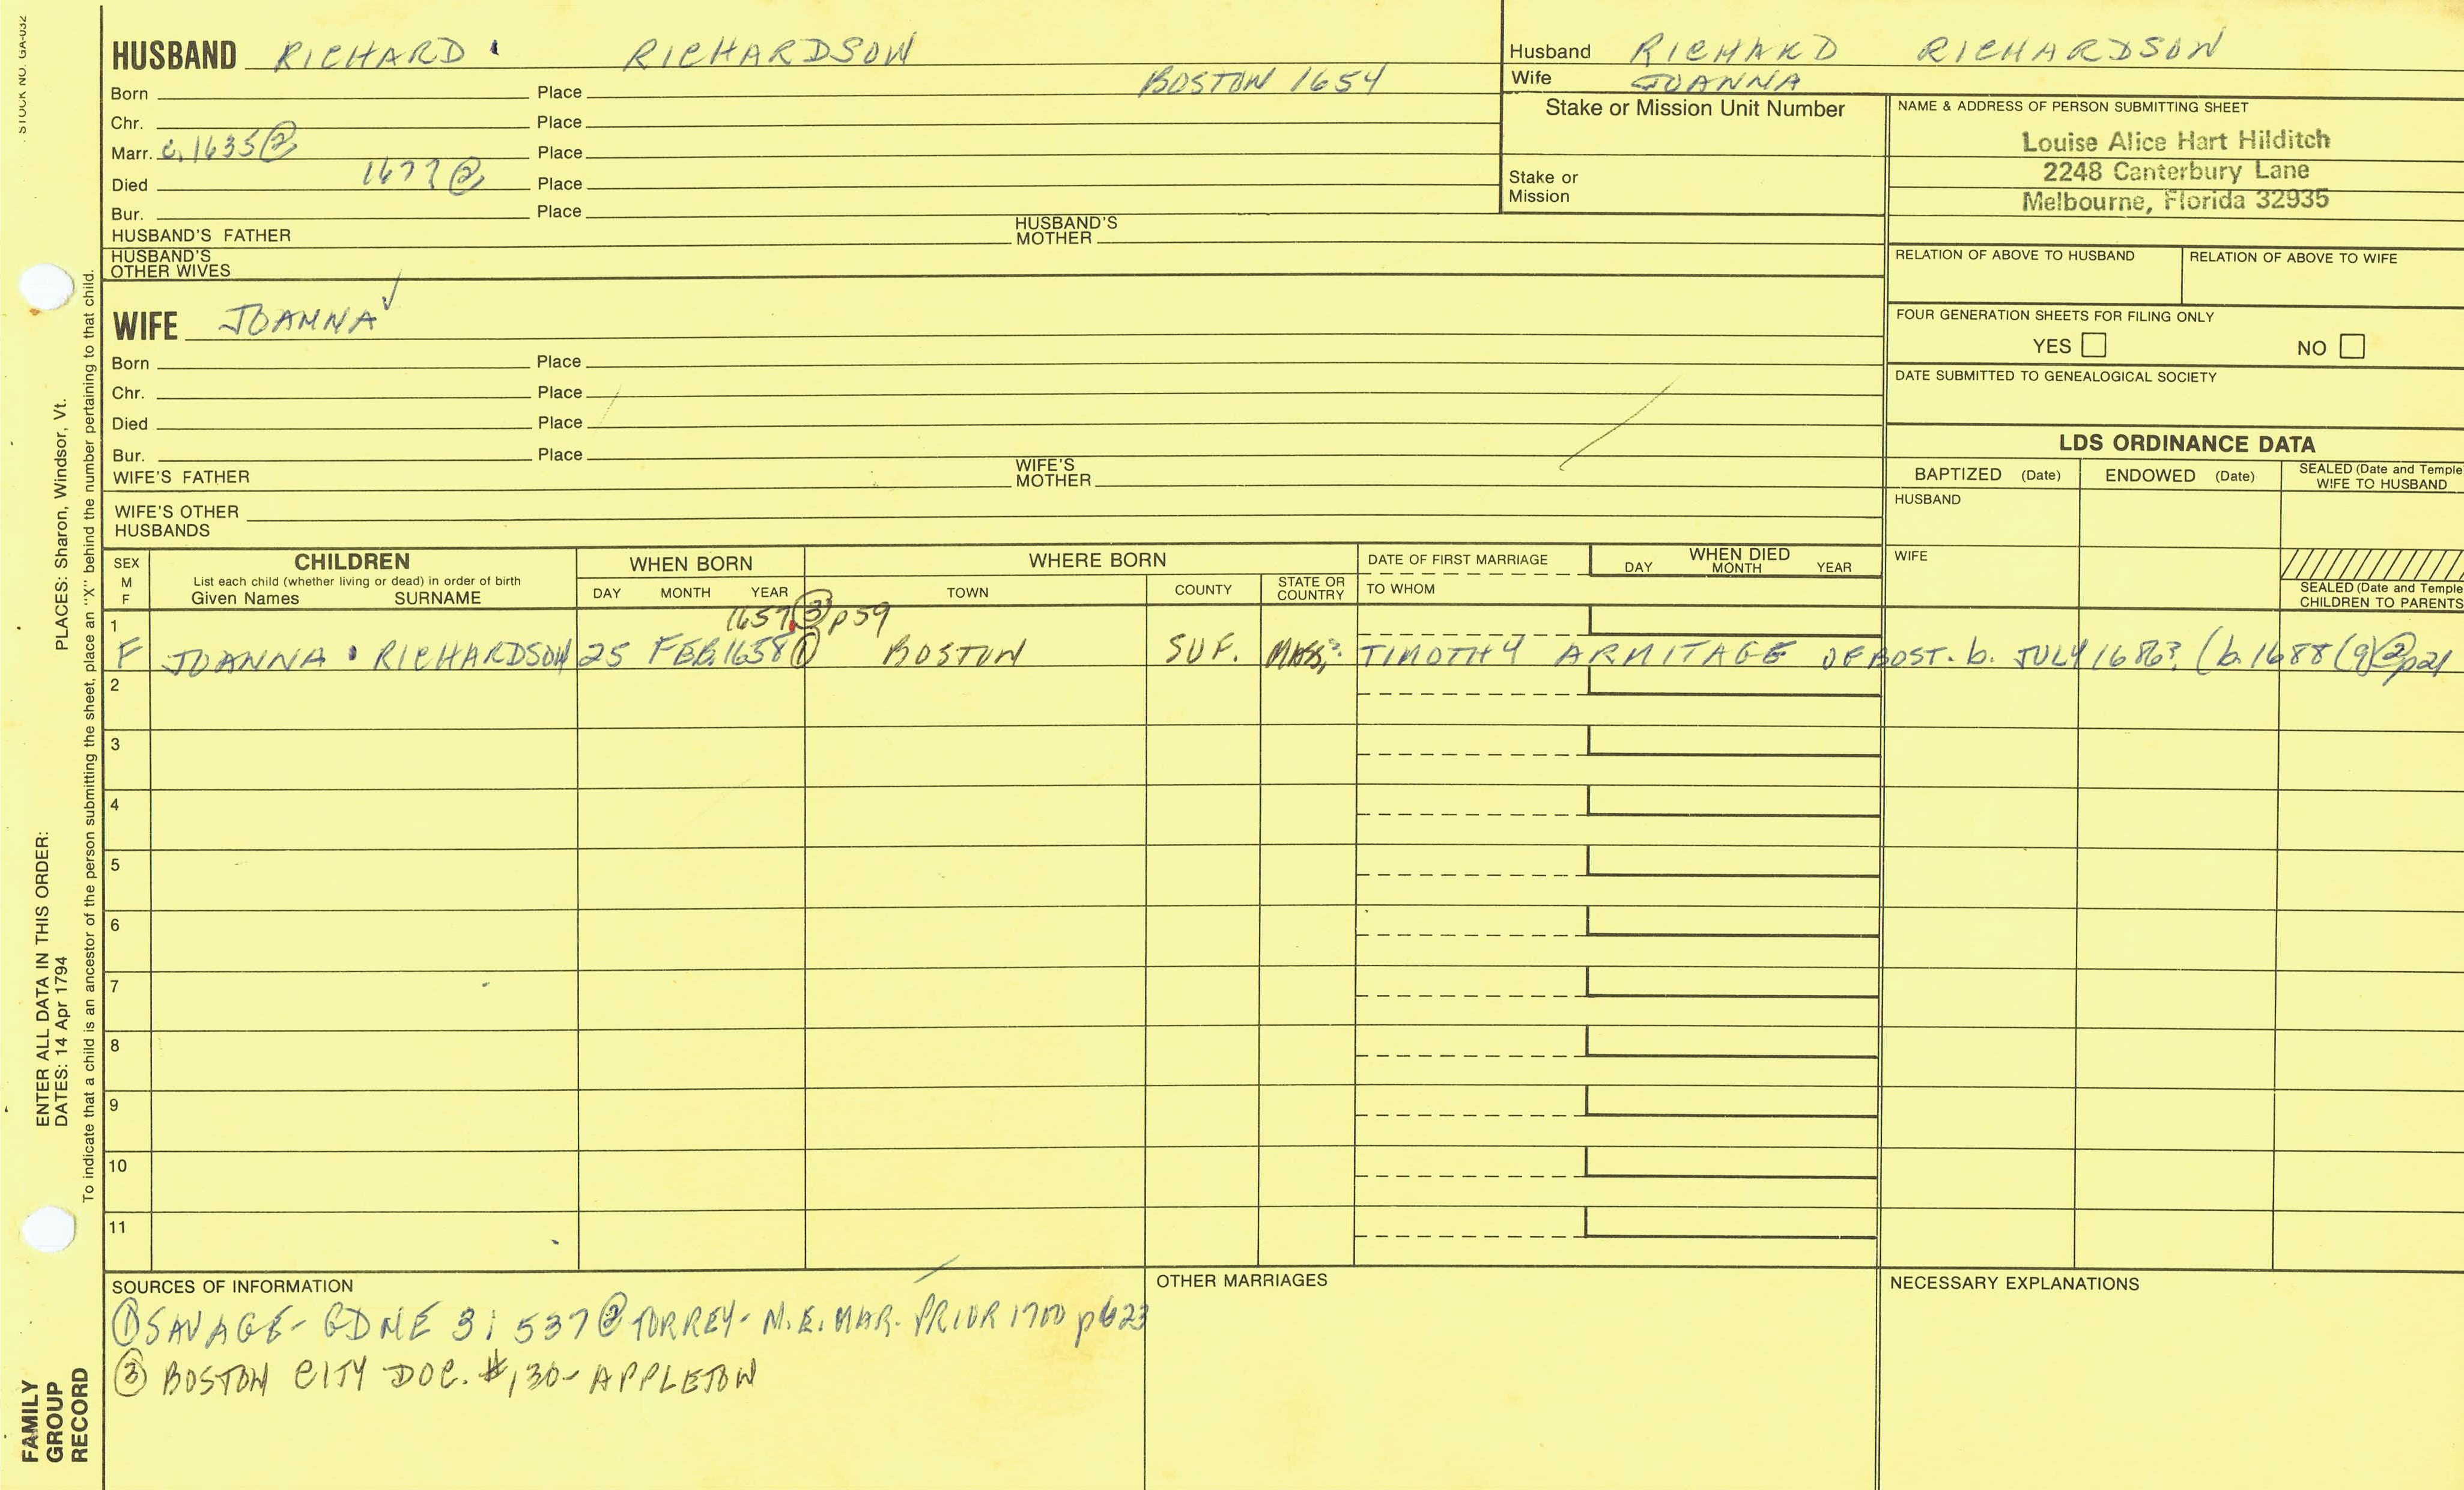 STOCK NO. GA-032
HUSBAND RICHARD RICHARDSON
BOSTON 1654
Born Place
Chr. Place
Marr. c. 1635② Place
Died 1677② Place
Bur. Place
HUSBAND'S FATHER HUSBAND'S MOTHER
HUSBAND'S OTHER WIVES
Husband RICHARD RICHARDSON
Wife JOANNA
Stake or Mission Unit Number
Stake or Mission
NAME & ADDRESS OF PERSON SUBMITTING SHEET
Louise Alice Hart Hilditch
2248 Canterbury Lane
Melbourne, Florida 32935
RELATION OF ABOVE TO HUSBAND RELATION OF ABOVE TO WIFE
FOUR GENERATION SHEETS FOR FILING ONLY
YES NO
DATE SUBMITTED TO GENEALOGICAL SOCIETY
WIFE JOANNA ✓
Born Place
Chr. Place
Died Place
Bur. Place
WIFE'S FATHER WIFE'S MOTHER
WIFE'S OTHER HUSBANDS
LDS ORDINANCE DATA
BAPTIZED (Date) ENDOWED (Date) SEALED (Date and Temple
WIFE TO HUSBAND
HUSBAND
WIFE
SEALED (Date and Temple
CHILDREN TO PARENTS
SEX
M
F
CHILDREN
List each child (whether living or dead) in order of birth
Given Names SURNAME
WHEN BORN
DAY MONTH YEAR
WHERE BORN
TOWN COUNTY STATE OR COUNTRY
DATE OF FIRST MARRIAGE
TO WHOM
WHEN DIED
DAY MONTH YEAR
1657 ③ p59
1
F JOANNA RICHARDSON 25 FEB. 1658 ① BOSTON SUF. MASS. TIMOTHY ARMITAGE OF BOST. b. JULY 1686? (b. 1688 (9) ② p21
2
3
4
5
6
7
8
9
10
11
SOURCES OF INFORMATION
① SAVAGE - GDNE 3: 537 ② TORREY - N.E. MAR. PRIOR 1700 p623
③ BOSTON CITY DOC. #130 - APPLETON
OTHER MARRIAGES
NECESSARY EXPLANATIONS
ENTER ALL DATA IN THIS ORDER:
DATES: 14 Apr 1794 PLACES: Sharon, Windsor, Vt.
To indicate that a child is an ancestor of the person submitting the sheet, place an "X" behind the number pertaining to that child.
FAMILY
GROUP
RECORD